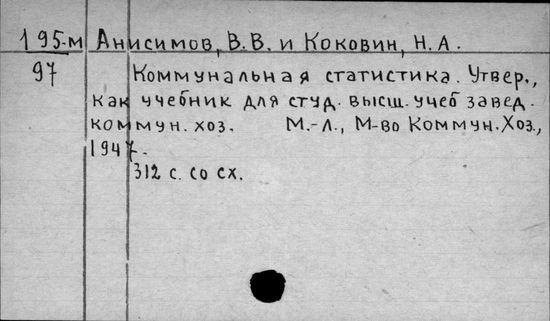 195-м Анисимов, В.В. и Коковин, Н.А.
97 Коммунальная статистика. Утвер.,
как учебник для студ. высш. учеб завед.
коммун. хоз. М.-Л., М-во Коммун.Хоз.,
1947.
312 с. со сх.